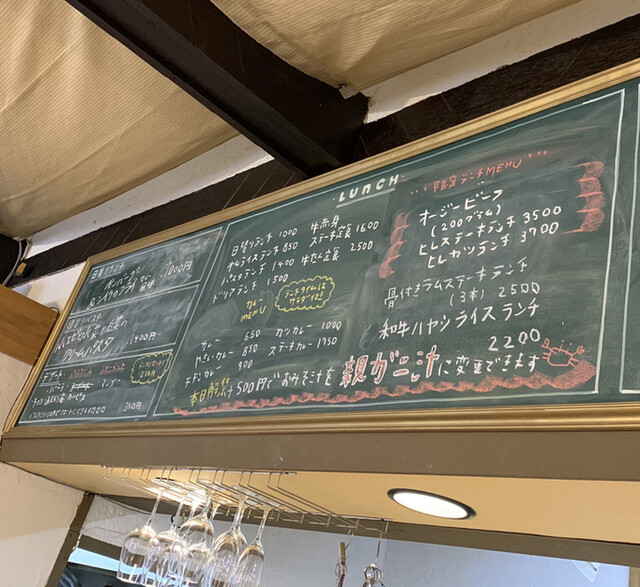 日替りランチ
ハンバーグ
&シイラのフライ
1000円
週替りパスタ
クリームパスタ
1400円
デザート
350円
LUNCH
日替りランチ 1000
オムライスランチ 850
パスタランチ 1400
ドリアランチ 1500
牛赤身
ステーキ定食 1600
牛たん定食 2500
カレー
MENU
ランチタイムは
サラダ付き
カレー 650
やさいカレー 850
チキンカレー 900
カツカレー 1000
ステーキカレー 1950
限定ランチMENU
オージービーフ
(200グラム)
ヒレステーキランチ 3500
ヒレカツランチ 3700
骨付きラムステーキランチ
(3本) 2500
和牛ハヤシライスランチ
2200
本日限定 +500円でおみそ汁を親ガニ汁に変更できます